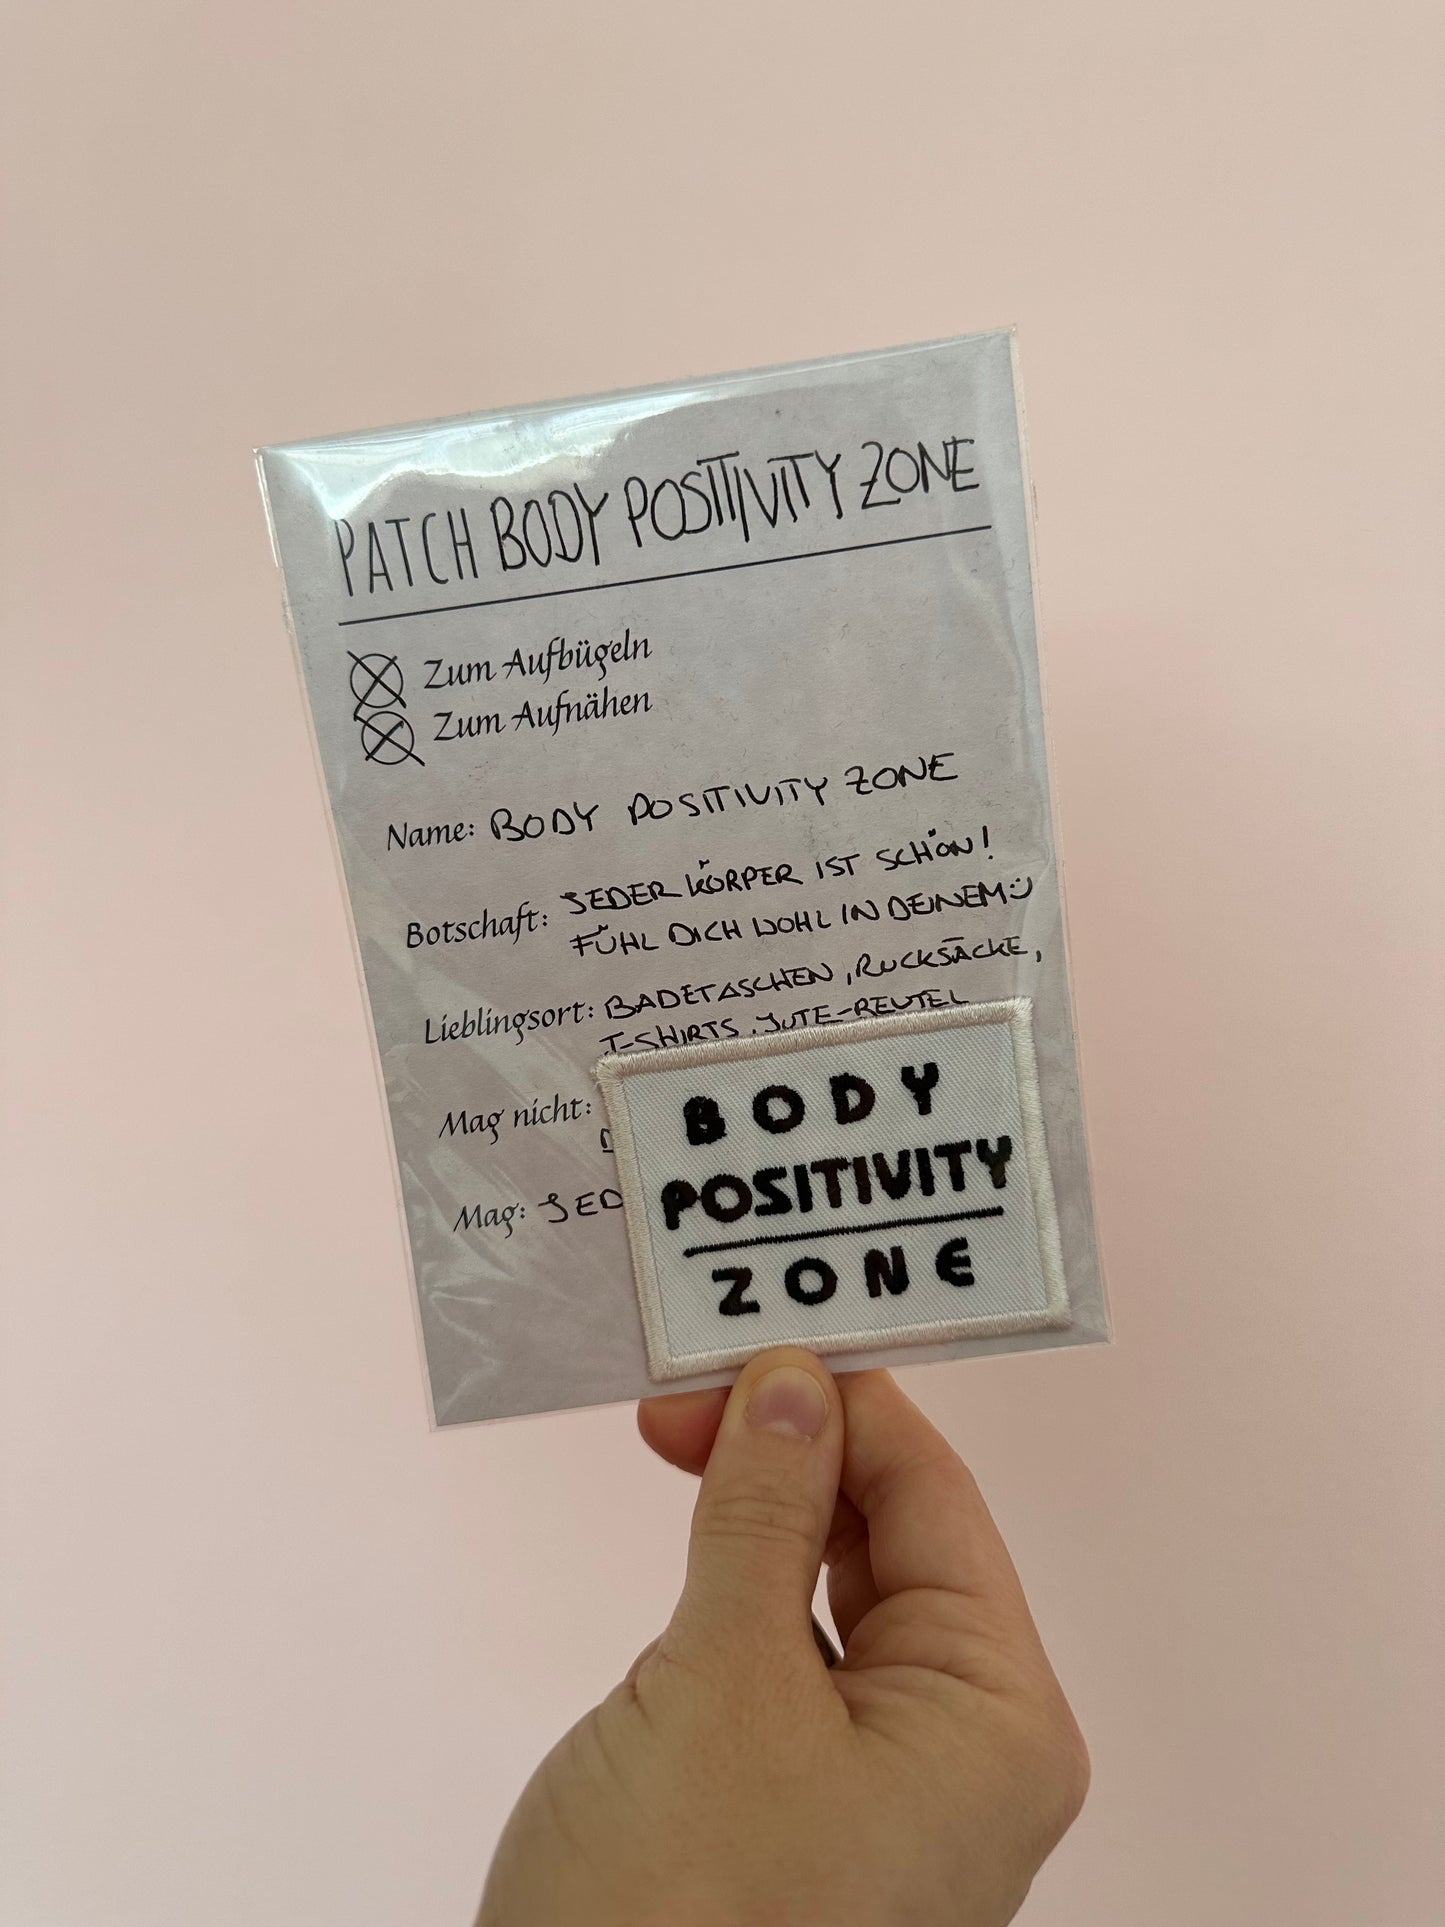 PATCH BODY POSITIVITY ZONE
Zum Aufbügeln
Zum Aufnähen
Name: BODY POSITIVITY ZONE
Botschaft: JEDER KÖRPER IST SCHÖN!
FÜHL DICH WOHL IN DEINEM
Lieblingsort: BADETASCHEN, RUCKSÄCKE,
T-SHIRTS, JUTE-BEUTEL
Mag nicht:
Mag: JED
BODY
POSITIVITY
ZONE